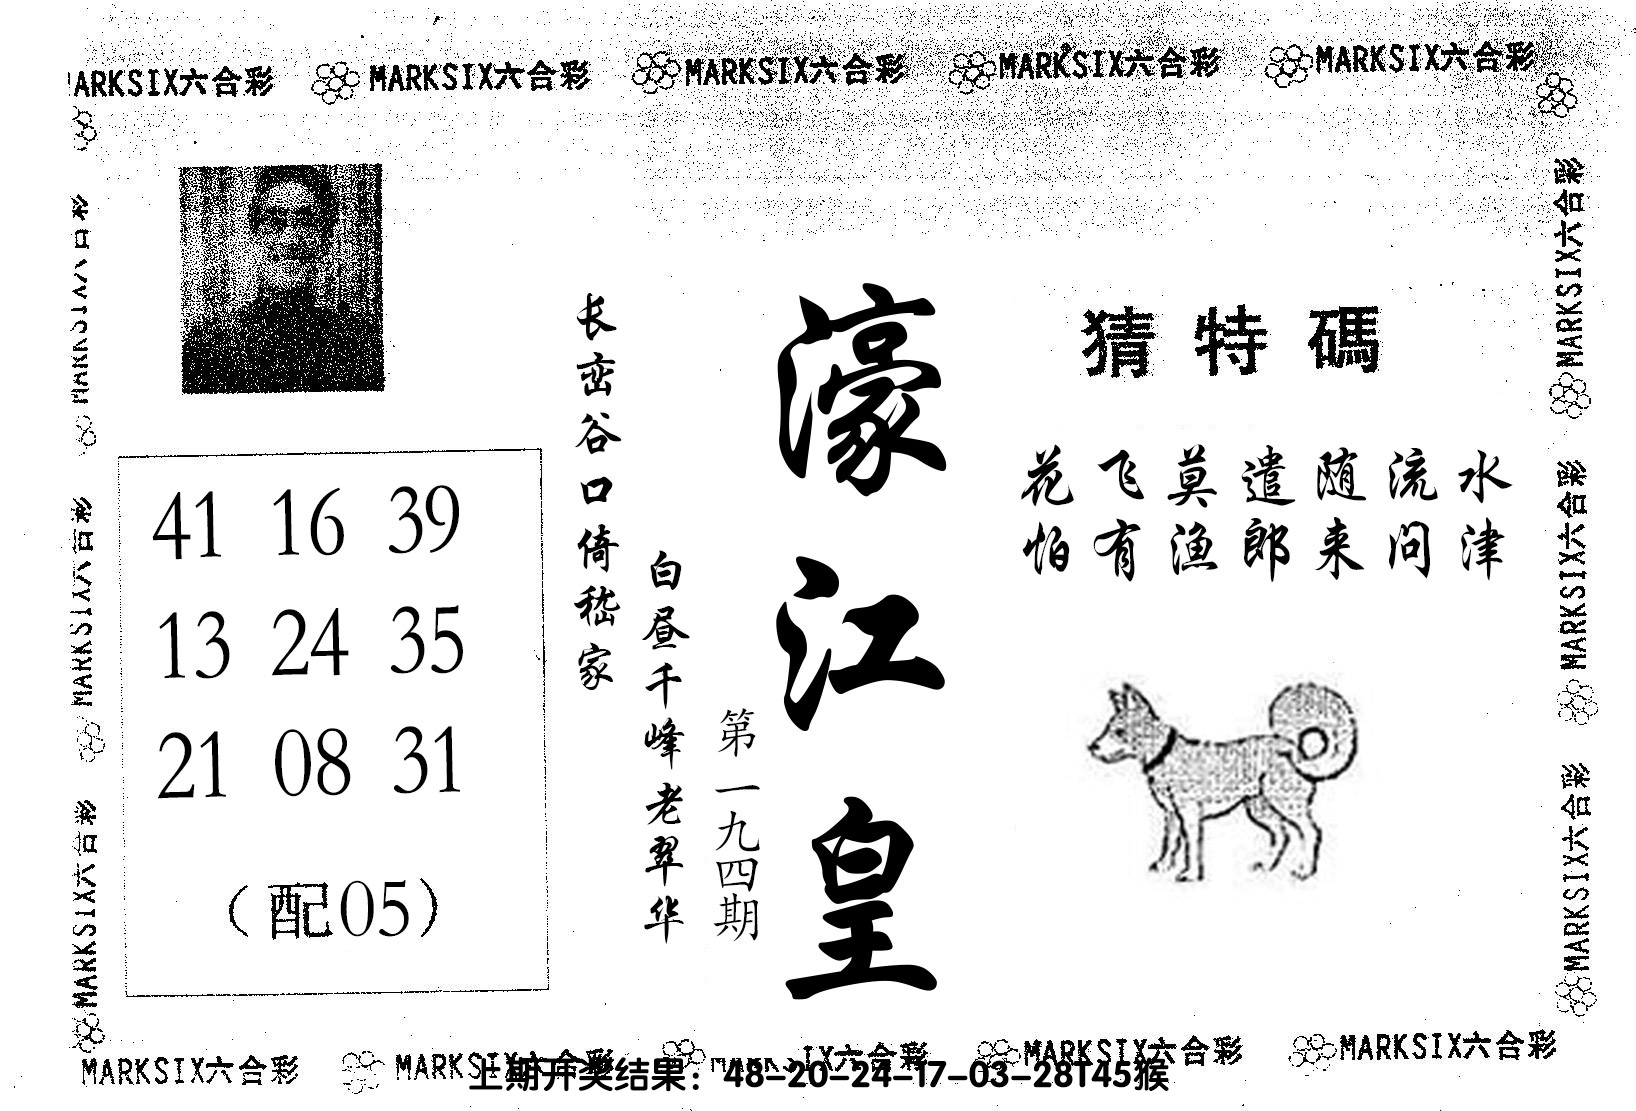 MARKSIX六合彩 MARKSIX六合彩 MARKSIX六合彩 MARKSIX六合彩 MARKSIX六合彩
猜特碼
花飞莫遣随流水
怕有渔郎来问津
濠江皇
第一九四期
长峦谷口倚嵇家
白昼千峰老翠华
41 16 39
13 24 35
21 08 31
（配05）
MARKSIX六合彩
MARKSIX六合彩
MARKSIX六合彩
MARKSIX六合彩
MARKSIX六合彩
MARKSIX六合彩
MARKSIX六合彩 MARKSIX六合彩 MARKSIX六合彩 MARKSIX六合彩 MARKSIX六合彩
上期开奖结果：48-20-24-17-03-28T45猴